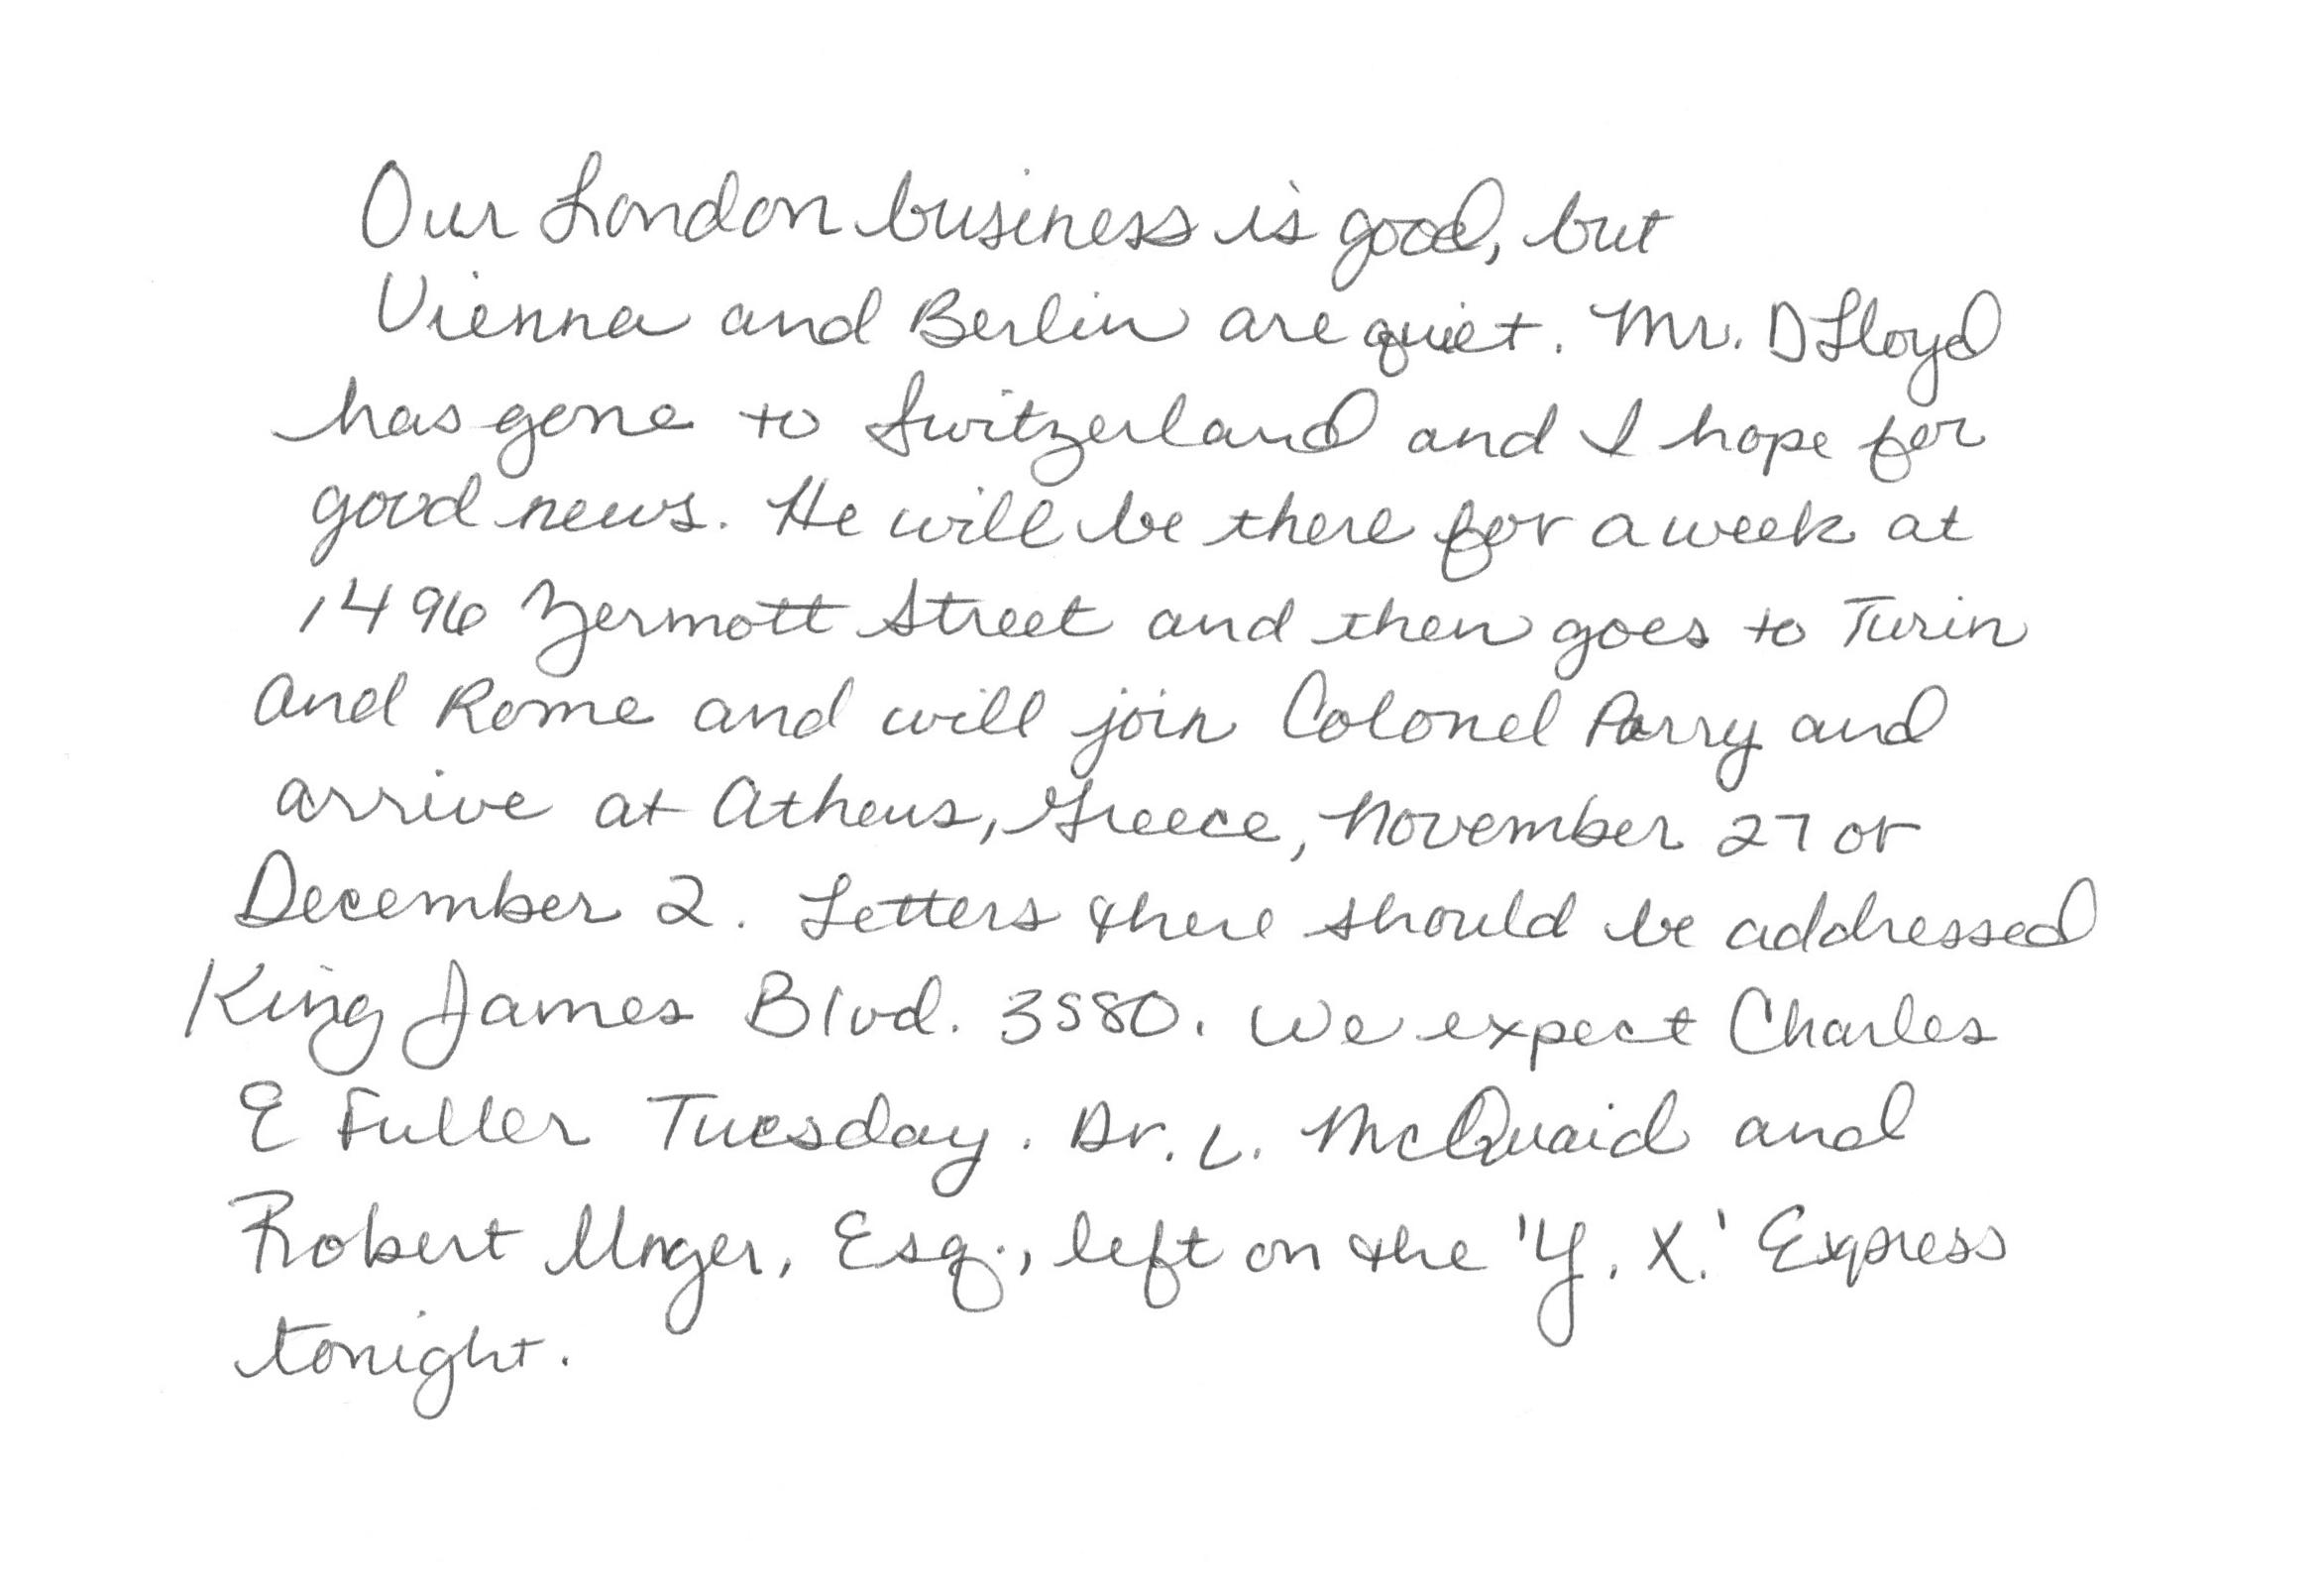 Our London business is good, but
Vienna and Berlin are quiet. Mr. D Lloyd
has gone to Switzerland and I hope for
good news. He will be there for a week at
1496 Zermott Street and then goes to Turin
and Rome and will join Colonel Parry and
arrive at Athens, Greece, November 27 or
December 2. Letters there should be addressed
King James Blvd. 3580. We expect Charles
E Fuller Tuesday. Dr. L. McQuaid and
Robert Unger, Esq., left on the 'Y. X.' Express
tonight.